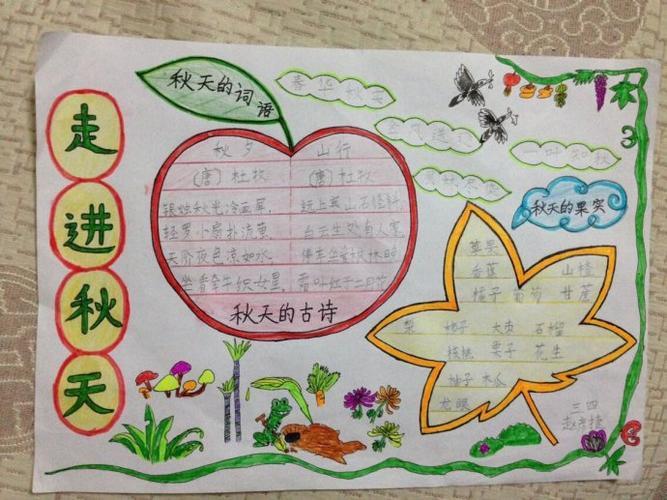 走进秋天
秋天的词语
春华秋实
金风送爽
一叶知秋
秋夕
(唐)杜牧
银烛秋光冷画屏,
轻罗小扇扑流萤
天阶夜色凉如水,
坐看牵牛织女星
山行
(唐)杜牧
远上寒山石径斜,
白云生处有人家
停车坐爱枫林晚
霜叶红于二月花
秋天的古诗
秋天的果实
苹果
香蕉 山楂
橘子 葡萄 甘蔗
梨 柿子 大枣 石榴
核桃 栗子 花生
柚子 木瓜
龙眼
三四